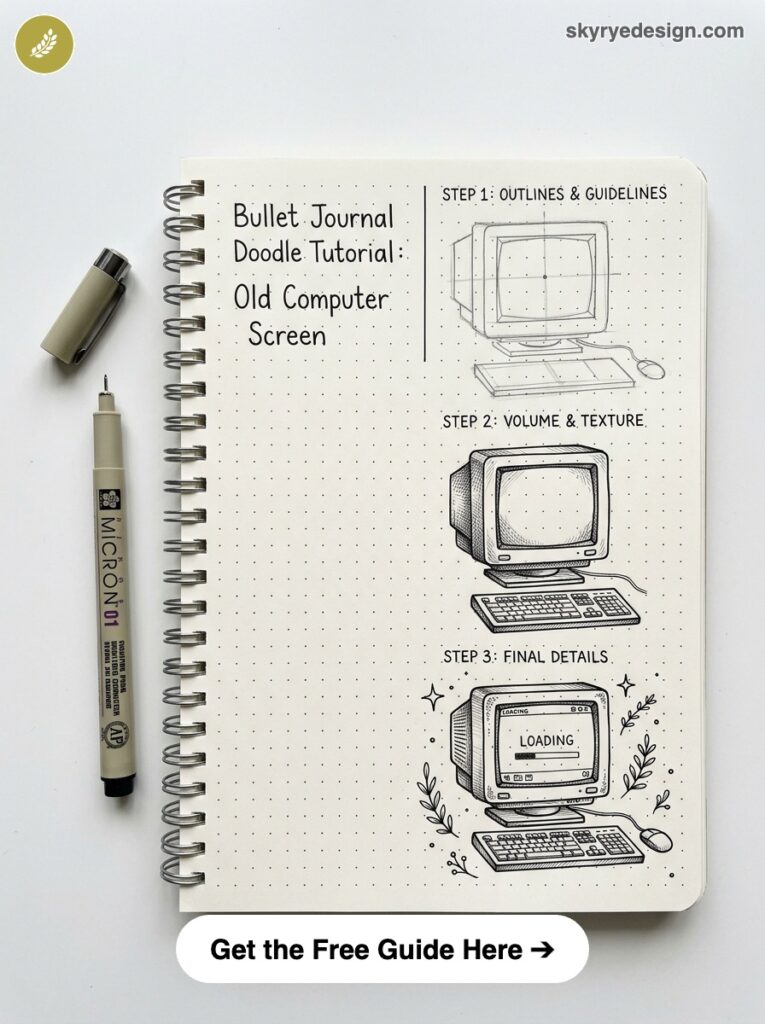 skyryedesign.com
Bullet Journal
Doodle Tutorial:
Old Computer
Screen
STEP 1: OUTLINES & GUIDELINES
STEP 2: VOLUME & TEXTURE
STEP 3: FINAL DETAILS
LOADING
MICRON 01
Get the Free Guide Here ➔